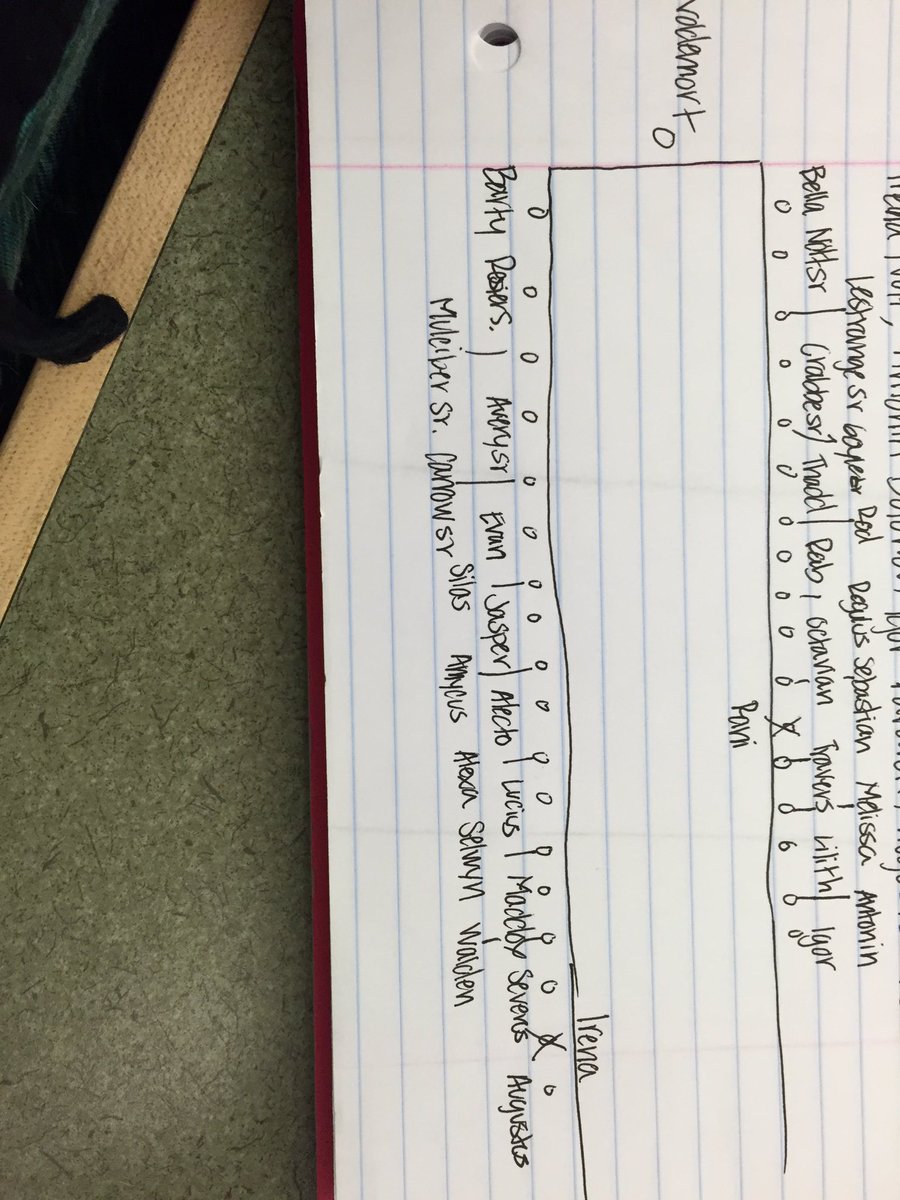 Lestrange sr Goyle sr Rod Regulus Sebastian Melissa Antonin
Bella Nott sr Crabbe sr Thadd Rab Octavian Travers Lilith Igor
Voldemort
Irena
Barty Avery sr Evan Jasper Alecto Lucius Maddox Severus Augustus
Mulciber Sr. Carrow sr Silas Amycus Alexa Selwyn Walden